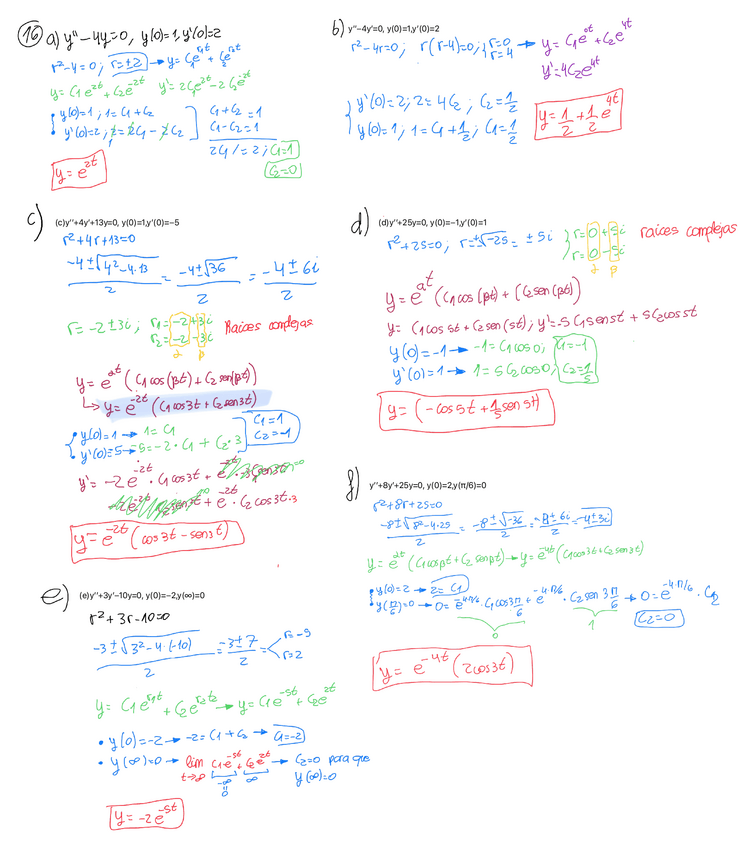 16 a) y'' - 4y = 0, y(0) = 1, y'(0) = 2
r² - 4 = 0; r = ±2 → y = C₁e^{r₁t} + C₂e^{r₂t}
y = C₁e^{2t} + C₂e^{-2t} y' = 2C₁e^{2t} - 2C₂e^{-2t}
• y(0) = 1; 1 = C₁ + C₂
• y'(0) = 2; 2 = 2C₁ - 2C₂
C₁ + C₂ = 1
C₁ - C₂ = 1
2C₁ / = 2; C₁ = 1
C₂ = 0
y = e^{2t}
b) y''-4y'=0, y(0)=1,y'(0)=2
r² - 4r = 0; r(r-4) = 0; { r = 0 → y = C₁e^{0t} + C₂e^{4t}
r = 4
y' = 4C₂e^{4t}
y'(0) = 2; 2 = 4C₂; C₂ = 1/2
y(0) = 1, 1 = C₁ + 1/2; C₁ = 1/2
y = 1/2 + 1/2 e^{4t}
c) (c)y''+4y'+13y=0, y(0)=1,y'(0)=-5
r² + 4r + 13 = 0
-4 ± √(4² - 4·13) / 2 = -4 ± √36 / 2 = -4 ± 6i / 2
r = -2 ± 3i; r₁ = -2 + 3i
r₂ = -2 - 3i Raíces complejas
α β
y = e^{αt} (C₁cos(βt) + C₂sen(βt))
↳ y = e^{-2t} (C₁cos3t + C₂sen3t)
• y(0) = 1 → 1 = C₁
• y'(0) = 5 → -5 = -2·C₁ + C₂·3
C₁ = 1
C₂ = -1
y' = -2e^{-2t} · C₁cos3t + e^{-2t}
+ e^{-2t} · C₂cos3t·3
y = e^{-2t} (cos3t - sen3t)
d) (d)y''+25y=0, y(0)=-1,y'(0)=1
r² + 25 = 0, r = ±√-25 = ±5i } r = 0 + 5i
r = 0 - 5i
raíces complejas
α β
y = e^{αt} (C₁cos(βt) + (C₂sen(βt))
y = C₁cos5t + C₂sen(5t); y' = -5C₁sen5t + 5C₂cos5t
y(0) = -1 → -1 = C₁cos0; C₁ = -1
y'(0) = 1 → 1 = 5C₂cos0, C₂ = 1/5
y = (-cos5t + 1/5 sen5t)
e) (e)y''+3y'-10y=0, y(0)=-2,y(∞)=0
r² + 3r - 10 = 0
-3 ± √(3² - 4·(-10)) / 2 = -3 ± 7 / 2 = r = -5
r = 2
y = C₁e^{r₁t} + C₂e^{r₂t₂} → y = C₁e^{-5t} + C₂e^{2t}
• y(0) = -2 → -2 = C₁ + C₂ → C₁ = -2
• y(∞) = 0 → lim t→∞ C₁e^{-5t} + C₂e^{2t} → C₂ = 0 para que
y(∞) = 0
-∞ ∞
0
y = -2e^{-5t}
f) y''+8y'+25y=0, y(0)=2,y(π/6)=0
r² + 8r + 25 = 0
-8 ± √(8² - 4·25) / 2 = -8 ± √-36 / 2 = -8 ± 6i / 2 = -4 ± 3i
y = e^{αt} (C₁cosβt + C₂senβt) → y = e^{-4t} (C₁cos3t + C₂sen3t)
• y(0) = 2 → 2 = C₁
• y(π/6) = 0 → 0 = e^{-4π/6} · C₁cos3π/6 + e^{-4π/6} · C₂sen3π/6 → 0 = e^{-4π/6} · C₂
0 1
C₂ = 0
y = e^{-4t} (2cos3t)